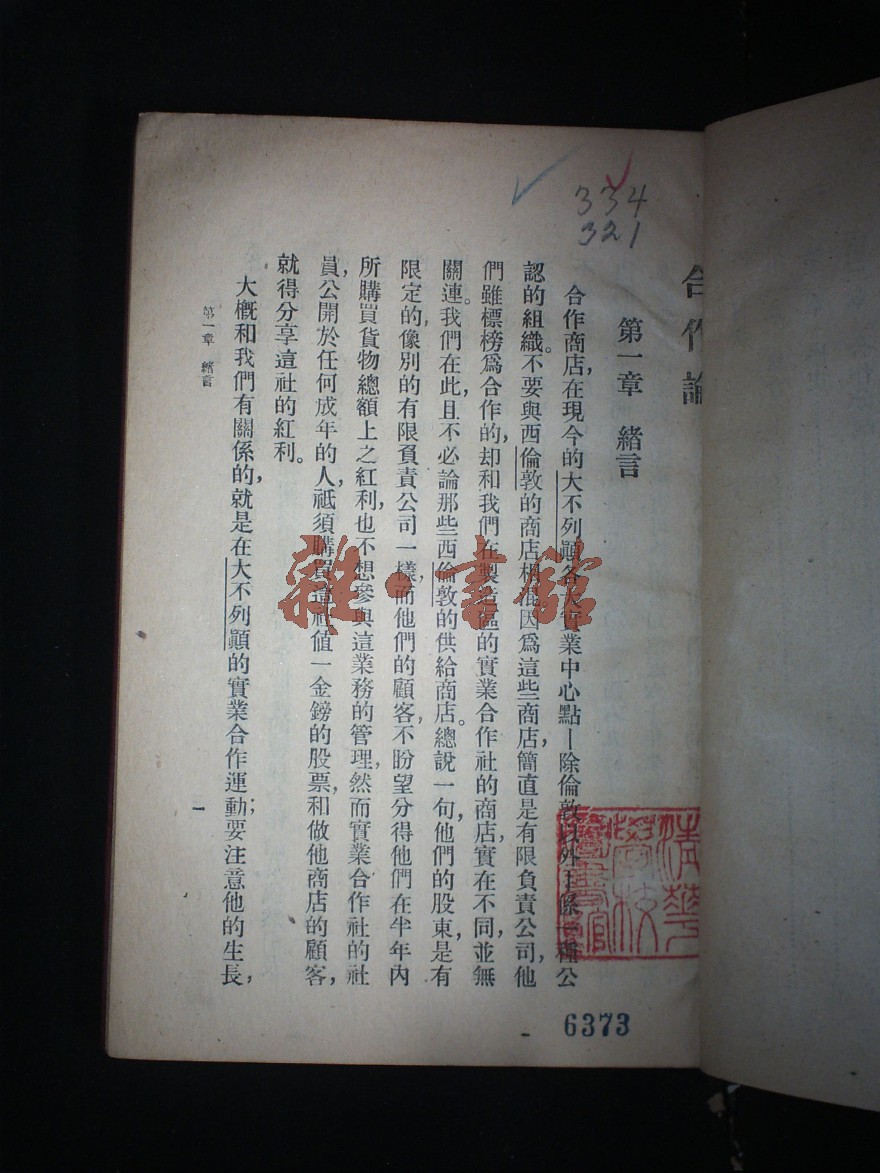 334
321
合作論
第一章 緒言
合作商店，在現今的大不列顚各大實業中心點—除倫敦以外—係一種公
認的組織。不要與西倫敦的商店相混，因爲這些商店，簡直是有限負責公司，他
們雖標榜爲合作的，却和我們在製造區的實業合作社的商店，實在不同，並無
關連。我們在此且不必論那些西倫敦的供給商店。總說一句，他們的股東，是有
限定的，像別的有限負責公司一樣，而他們的顧客，不盼望分得他們在半年內
所購買貨物總額上之紅利，也不想參與這業務的管理，然而實業合作社的社
員，公開於任何成年的人，祇須購買這社值一金鎊的股票，和做他商店的顧客，
就得分享這社的紅利。
大槪和我們有關係的，就是在大不列顚的實業合作運動；要注意他的生長，
第一章 緒言
一
雜·書館
清華
學校
圖書館
6373